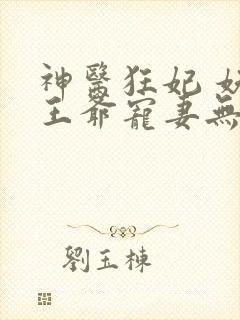 神醫狂妃
王爺寵妻無
劉玉棟